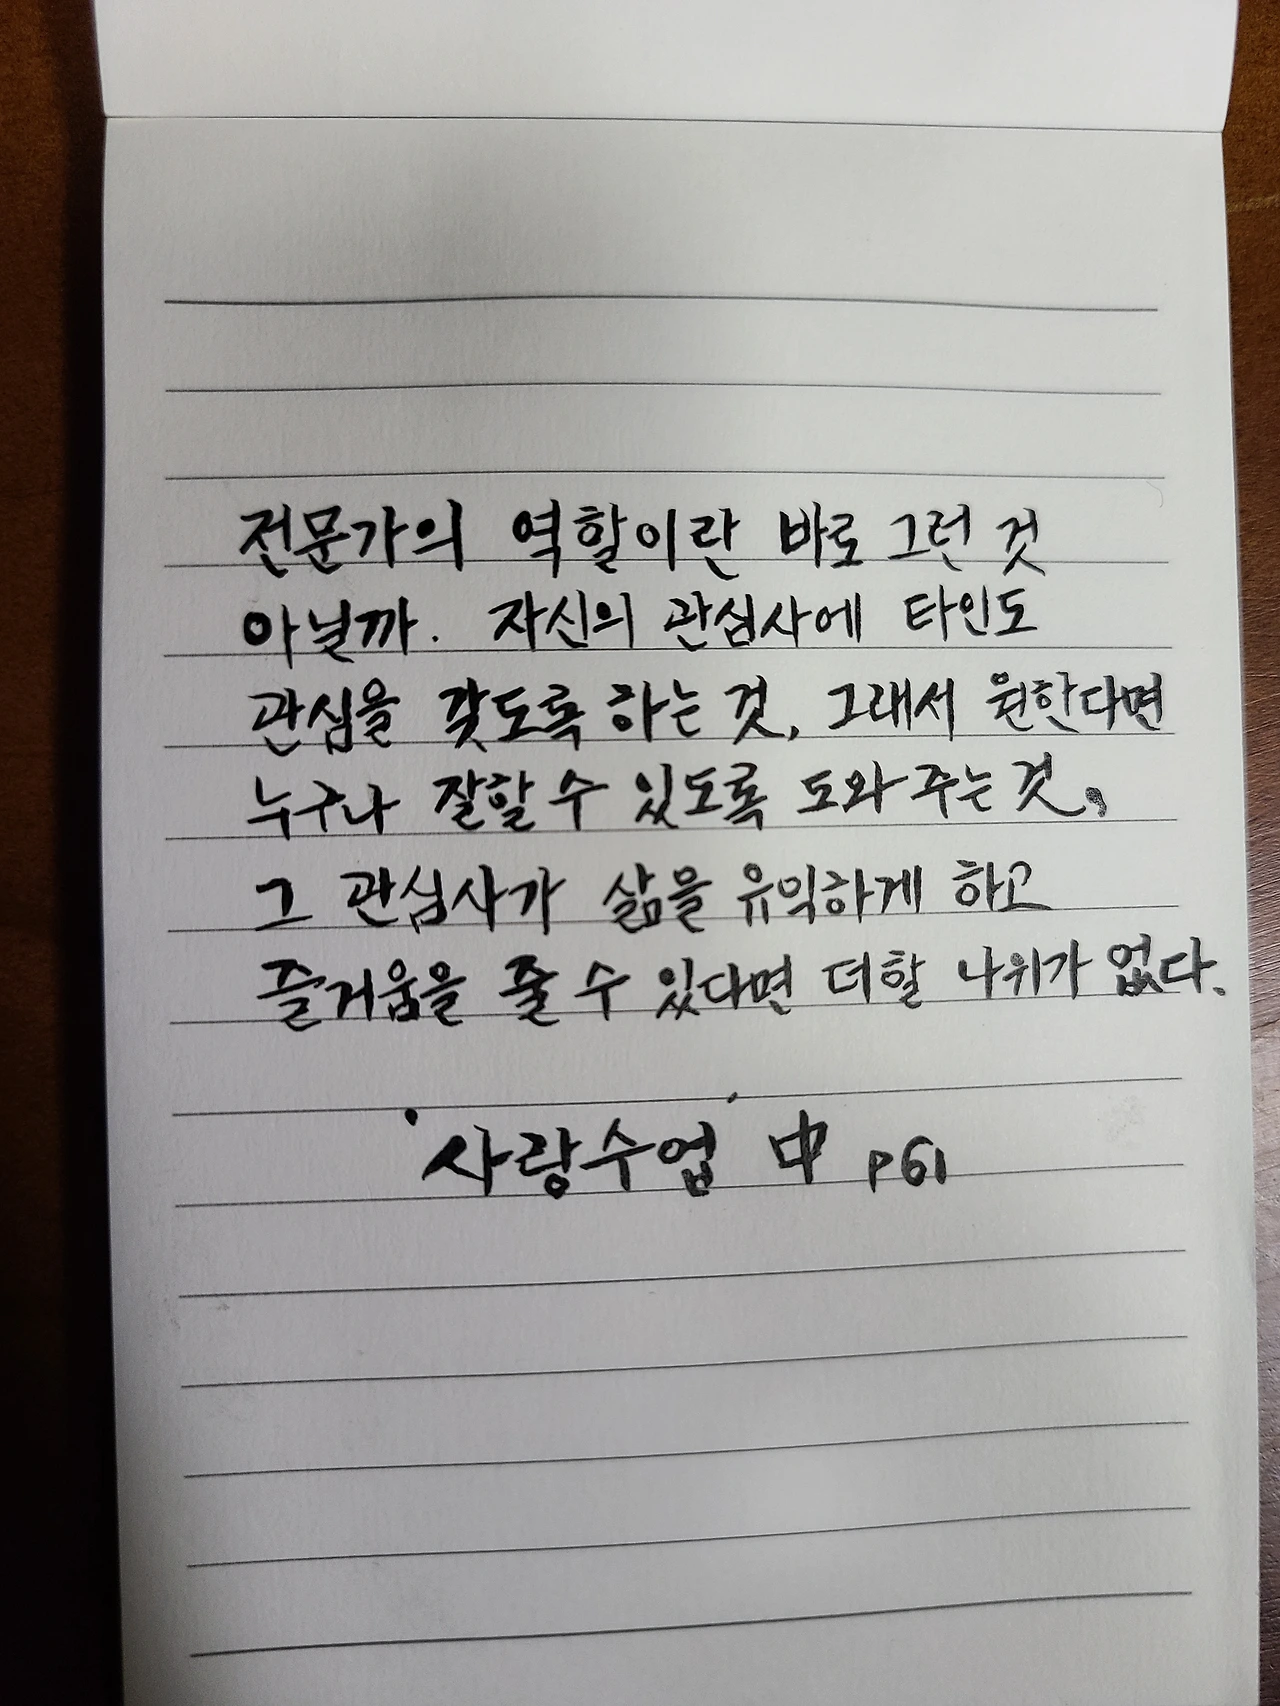 전문가의 역할이란 바로 그런 것
아닐까. 자신의 관심사에 타인도
관심을 갖도록 하는 것, 그래서 원한다면
누구나 잘할 수 있도록 도와 주는 것,
그 관심사가 삶을 유익하게 하고
즐거움을 줄 수 있다면 더할 나위가 없다.
'사랑수업' 中 p61